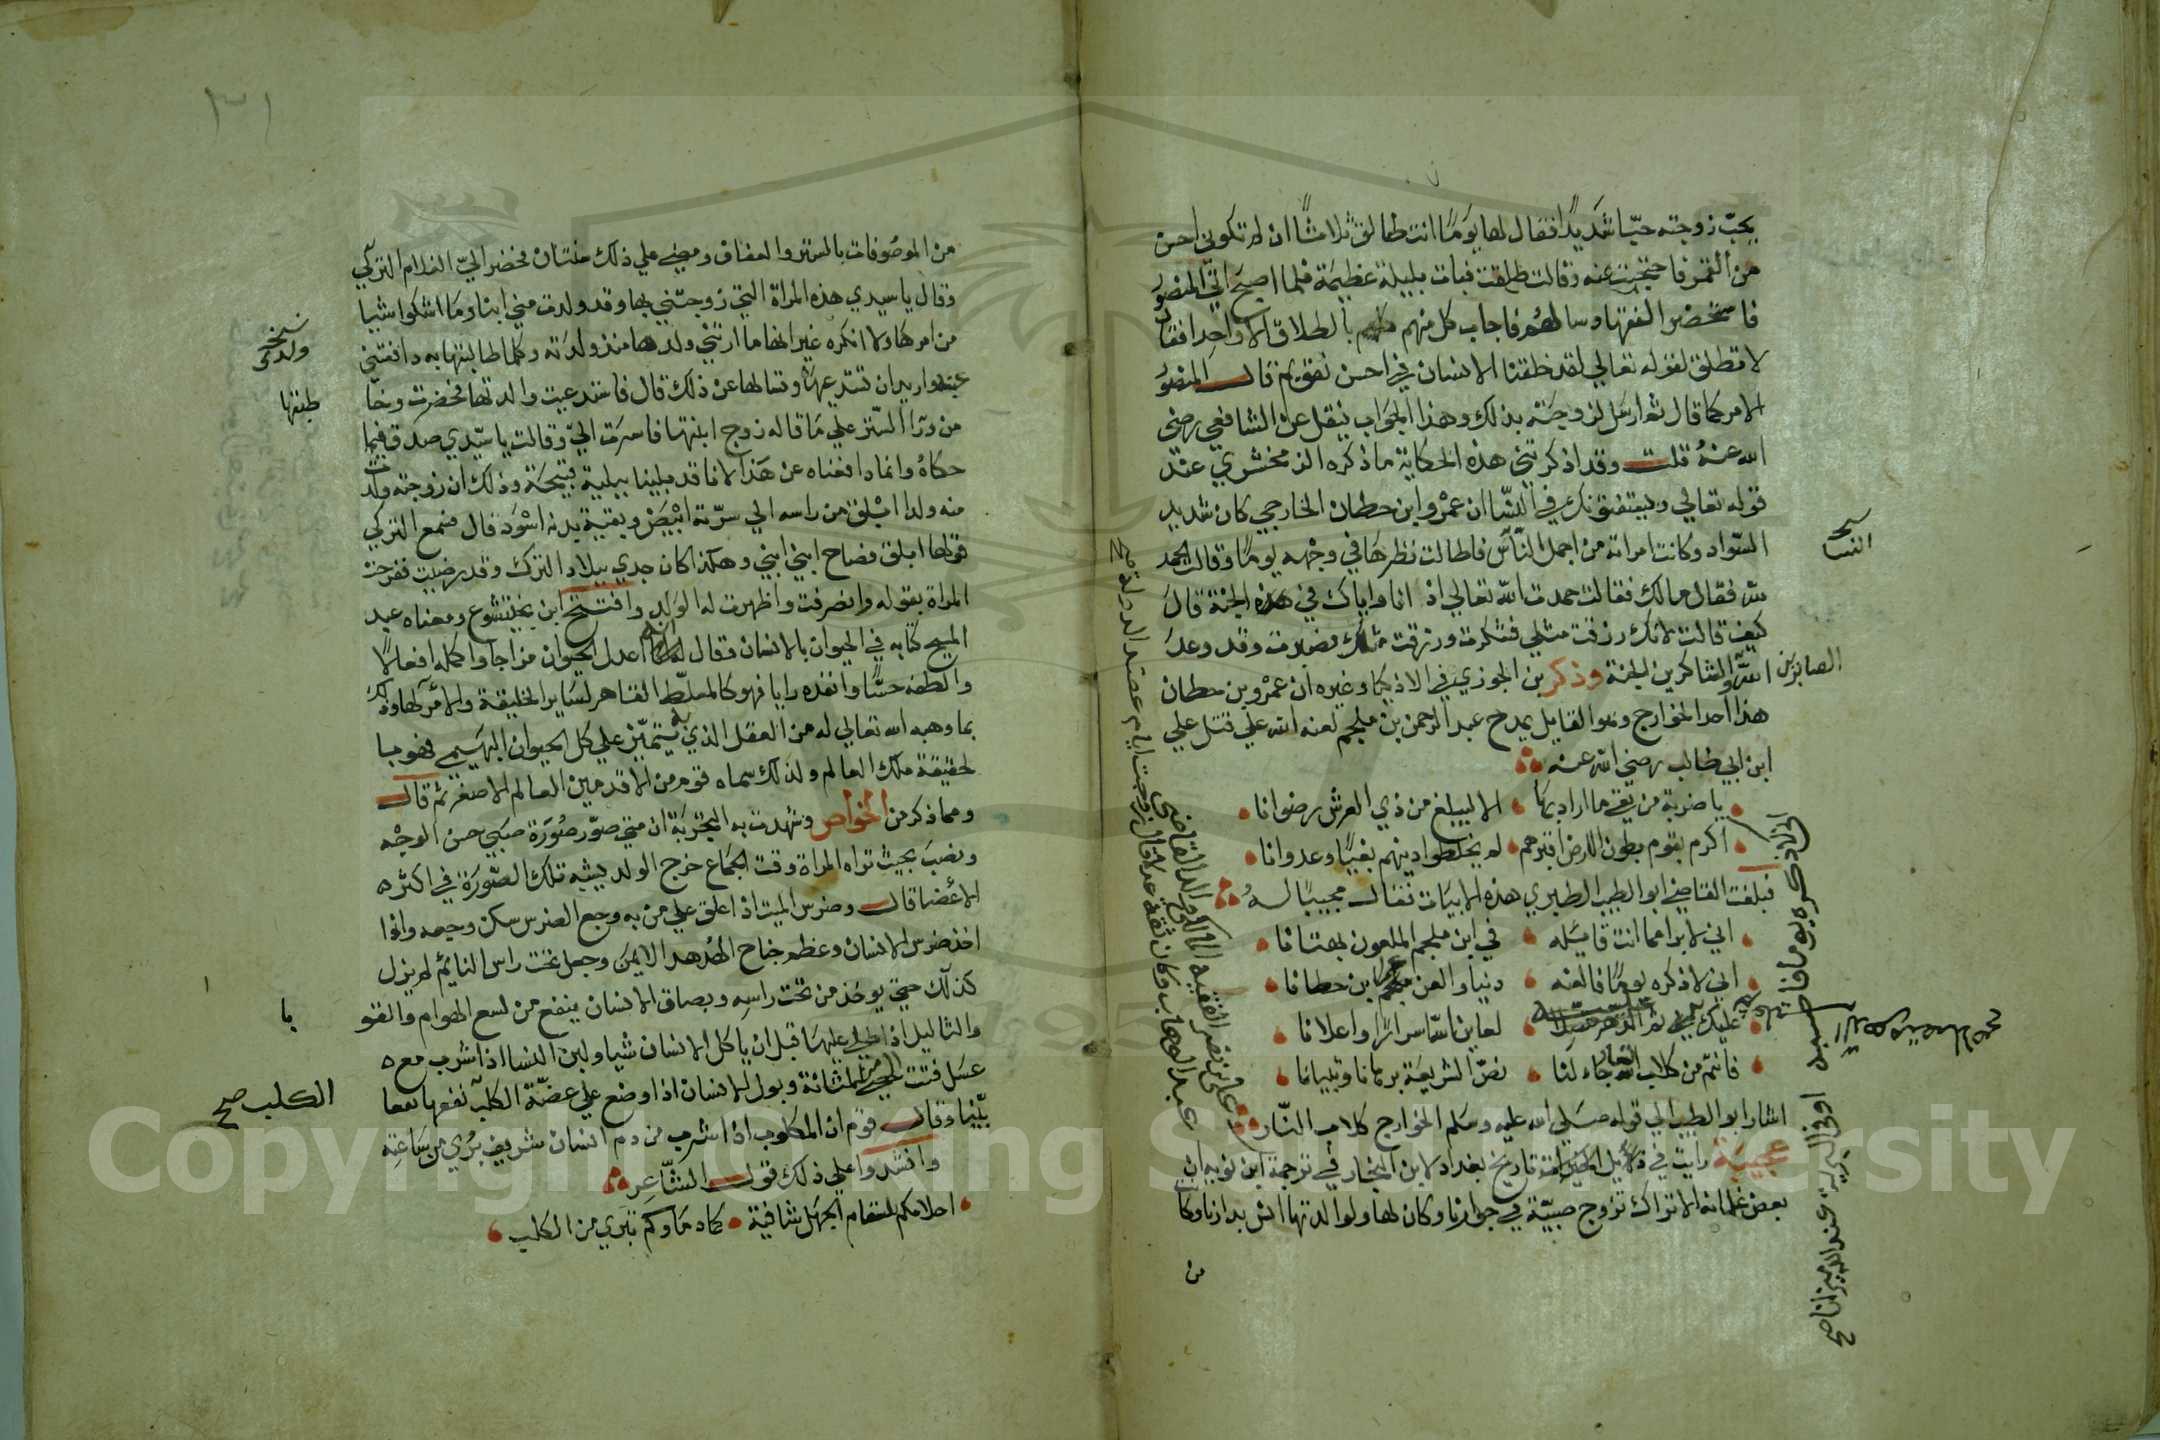 يحبّ زوجته حبّا شديدًا فقال لها يومًا انت طالق ثلاثًا ان لم تكوني احسن
من القمر فاحتجبت عنه وقالت طلقت فبات بليلة عظيمة فلما اصبح اتي المنصور
فاستحضر الفقها وسالهم فاجاب كل منهم بالطلاق الا واحدا فقال
لا تطلق لقوله تعالي لقد خلقنا الانسان في احسن تقويم قال المنصور
الامر كما قال ثم ارسل لزوجته بذلك وهذا الجواب ينقل عن الشافعي رضي
الله عنه قلت وقد اذكرتني هذه الحكاية ما ذكره الزمخشري عند
قوله تعالي ويستفتونك في النسا ان عمرو ابن حطان الخارجي كان شديد
السواد وكانت امراته من اجمل النّاس فاطالت نظرها في وجهه يومًا وقالت الحمد
لله فقال مالك فقالت حمدت الله تعالي اذ انا واياك في الجنة قال
كيف قالت لانك رزقت مثلي فشكرت ورزقت مثلك فصبرت وقد وعد
الله الشاكرين الجنة وذكر بن الجوزي في الاذكيا وغيره ان عمرو بن حطان
هذا احد الخوارج وهو القايل يمدح عبد الرحمن بن ملجم لعنه الله علي قتل علي
ابن ابي طالب رضي الله عنه
يا ضربة من تقي ما اراد بها الا ليبلغ من ذي العرش رضوانا
اكرم بقوم بطون الارض اقبرهم لم يخلطوا دينهم بغيًا وعدوانا
فبلغت القاضي ابو الطيب الطبري هذه الابيات فقال مجيبًا له
اني لابرا مما انت قايله في ابن ملجم الملعون بهتانا
اني لاذكره يومًا فالعنه دينا والعن عمرا بن حطانا
عليك ثم الدهر لعاين اسرارًا واعلانا
فانتم من كلاب النار جاء لنا نصّ الشريعة برهانا وتبيانا
اشار ابو الطيب الي قوله صلي الله عليه وسلم الخوارج كلاب النّار
عجيبة رايت في ذيل تاريخ بغداد لابن النجار في ترجمة ابن
بعض غلمانه الاتراك تزوج صبيّة في جوارنا وكان لها ولوالدتها انس بدارنا وكانا
من
نسخه
النسا
الصابرين
من الموصوفات بالستر والعفاف ومضي علي ذلك سنتان فحضر اليّ الغلام التركي
وقال يا سيدي هذه المراة التي زوجتني بها وقد ولدت مني ابنا وما اشكوا شيا
من امرها ولا انكره غير انها ما ارتني ولدها منذ ولدته وكلما طالبتها به دافعتني
عنه واريد ان تستدعيها وتسالها عن ذلك قال فاستدعيت والدتها فحضرت وخا
من ورا الستر علي ما قاله زوج ابنتها فاسرت اليّ وقالت يا سيّدي صدق فيما
حكاه وانما دافعناه عن هذا لانا قد بلينا ببلية قبيحة وذلك ان زوجته ولدت
منه ولدا ابلق من راسه الي سرّته ابيض وبقية بدنه اسود قال فسمع التركي
قولها ابلق فصاح ابني ابني وهكذا كان جدي ببلاد الترك وقد رضيت ففرحت
المراة بقوله وانصرفت واظهرت له الولد وافتتح ابن بختيشوع ومعناه عبد
المسيح كتابه في الحيوان بالانسان وقال اعدل الحيوان مزاجا واكمله افعالاً
والطفه حسًّا وانفذه رايا فهو كالمسلّط القاهر لساير الخليقة والامر لها وذلك
بما وهبه الله تعالي له من العقل الذي به يتميّز علي كل الحيوان البهيمي فهو بـا
لحقيقة ملك العالم ولذلك سماه قوم من الاقدمين العالم الاصغر ثم قال
ومما ذكر من الخواص وشهدت به التجربة ان متي صوّر صورة صبي حسن الوجه
ونصب بحيث تراه المراة وقت الجماع خرج الولد يشبه تلك الصّورة في اكثر
الاعضا قال وضرس الميت اذا علق علي من به وجع الضرس سكن وجعه واذا
اخذ ضرس الانسان وعظم جناح الهدهد الايمن وجعل تحت راس النايم لم يزل
كذلك حتي يوخذ من تحت راسه وبصاق الانسان ينفع من لسع الهوام والقو
والثاليل اذا طلي عليها قبل ان ياكل الانسان شيا ولبن النسا اذا شرب مع
عسل فتت الحجر من المثانة وبول الانسان اذا وضع علي عضّة الكلب نفعها نفعا
بيّنا وقال قوم ان المكلوب اذا شرب من دم انسان شريف بري من ساعته
وانشدوا علي ذلك قول الشّاعر
احلامكم لسقام الجهل شافية كما دماوكم تبري من الكلب
نسخه
ولدي
طبتها
با
الكلب صح